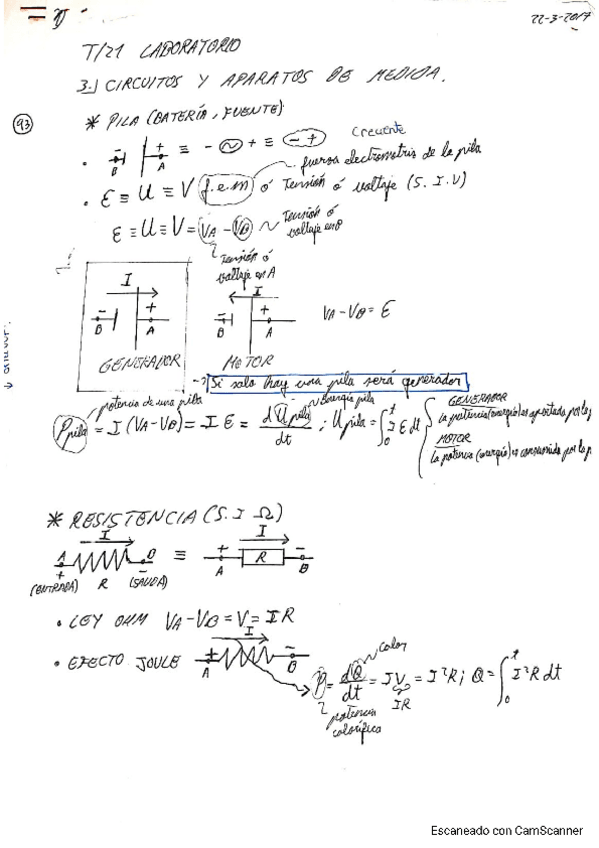 1)
22-3-2017
T/21 LABORATORIO
3.) CIRCUITOS Y APARATOS DE MEDIDA.
93
* PILA (BATERÍA, FUENTE)
B - + A ≡ - ~ + ≡ - +
fuerza electromotris de la pila
• ε ≡ U ≡ V (f.e.m) ó Tensión ó voltaje (S.I.V)
ε ≡ U ≡ V = VA - VB ~ Tensión ó voltaje en B
Tensión ó voltaje en A
I I
B - + A B - + A VA - VB = ε
GENERADOR MOTOR
→ Si solo hay una pila será generador
potencia de una pila
Energía pila
Ppila = I (VA - VB) = I ε = dUpila/dt ; Upila = ∫₀ᵗ I ε dt
GENERADOR
la potencia (energía) es aportada por la p
MOTOR
la potencia (energía) es consumida por la p
* RESISTENCIA (S.I Ω)
I I
A + R - B ≡ + A R - B
(ENTRADA) R (SALIDA)
• LEY OHM VA - VB = V = IR
• EFECTO JOULE + A I - B
Calor
P = dQ/dt = IV = I²R ; Q = ∫₀ᵗ I²R dt
IR
potencia calorífica
Escaneado con CamScanner